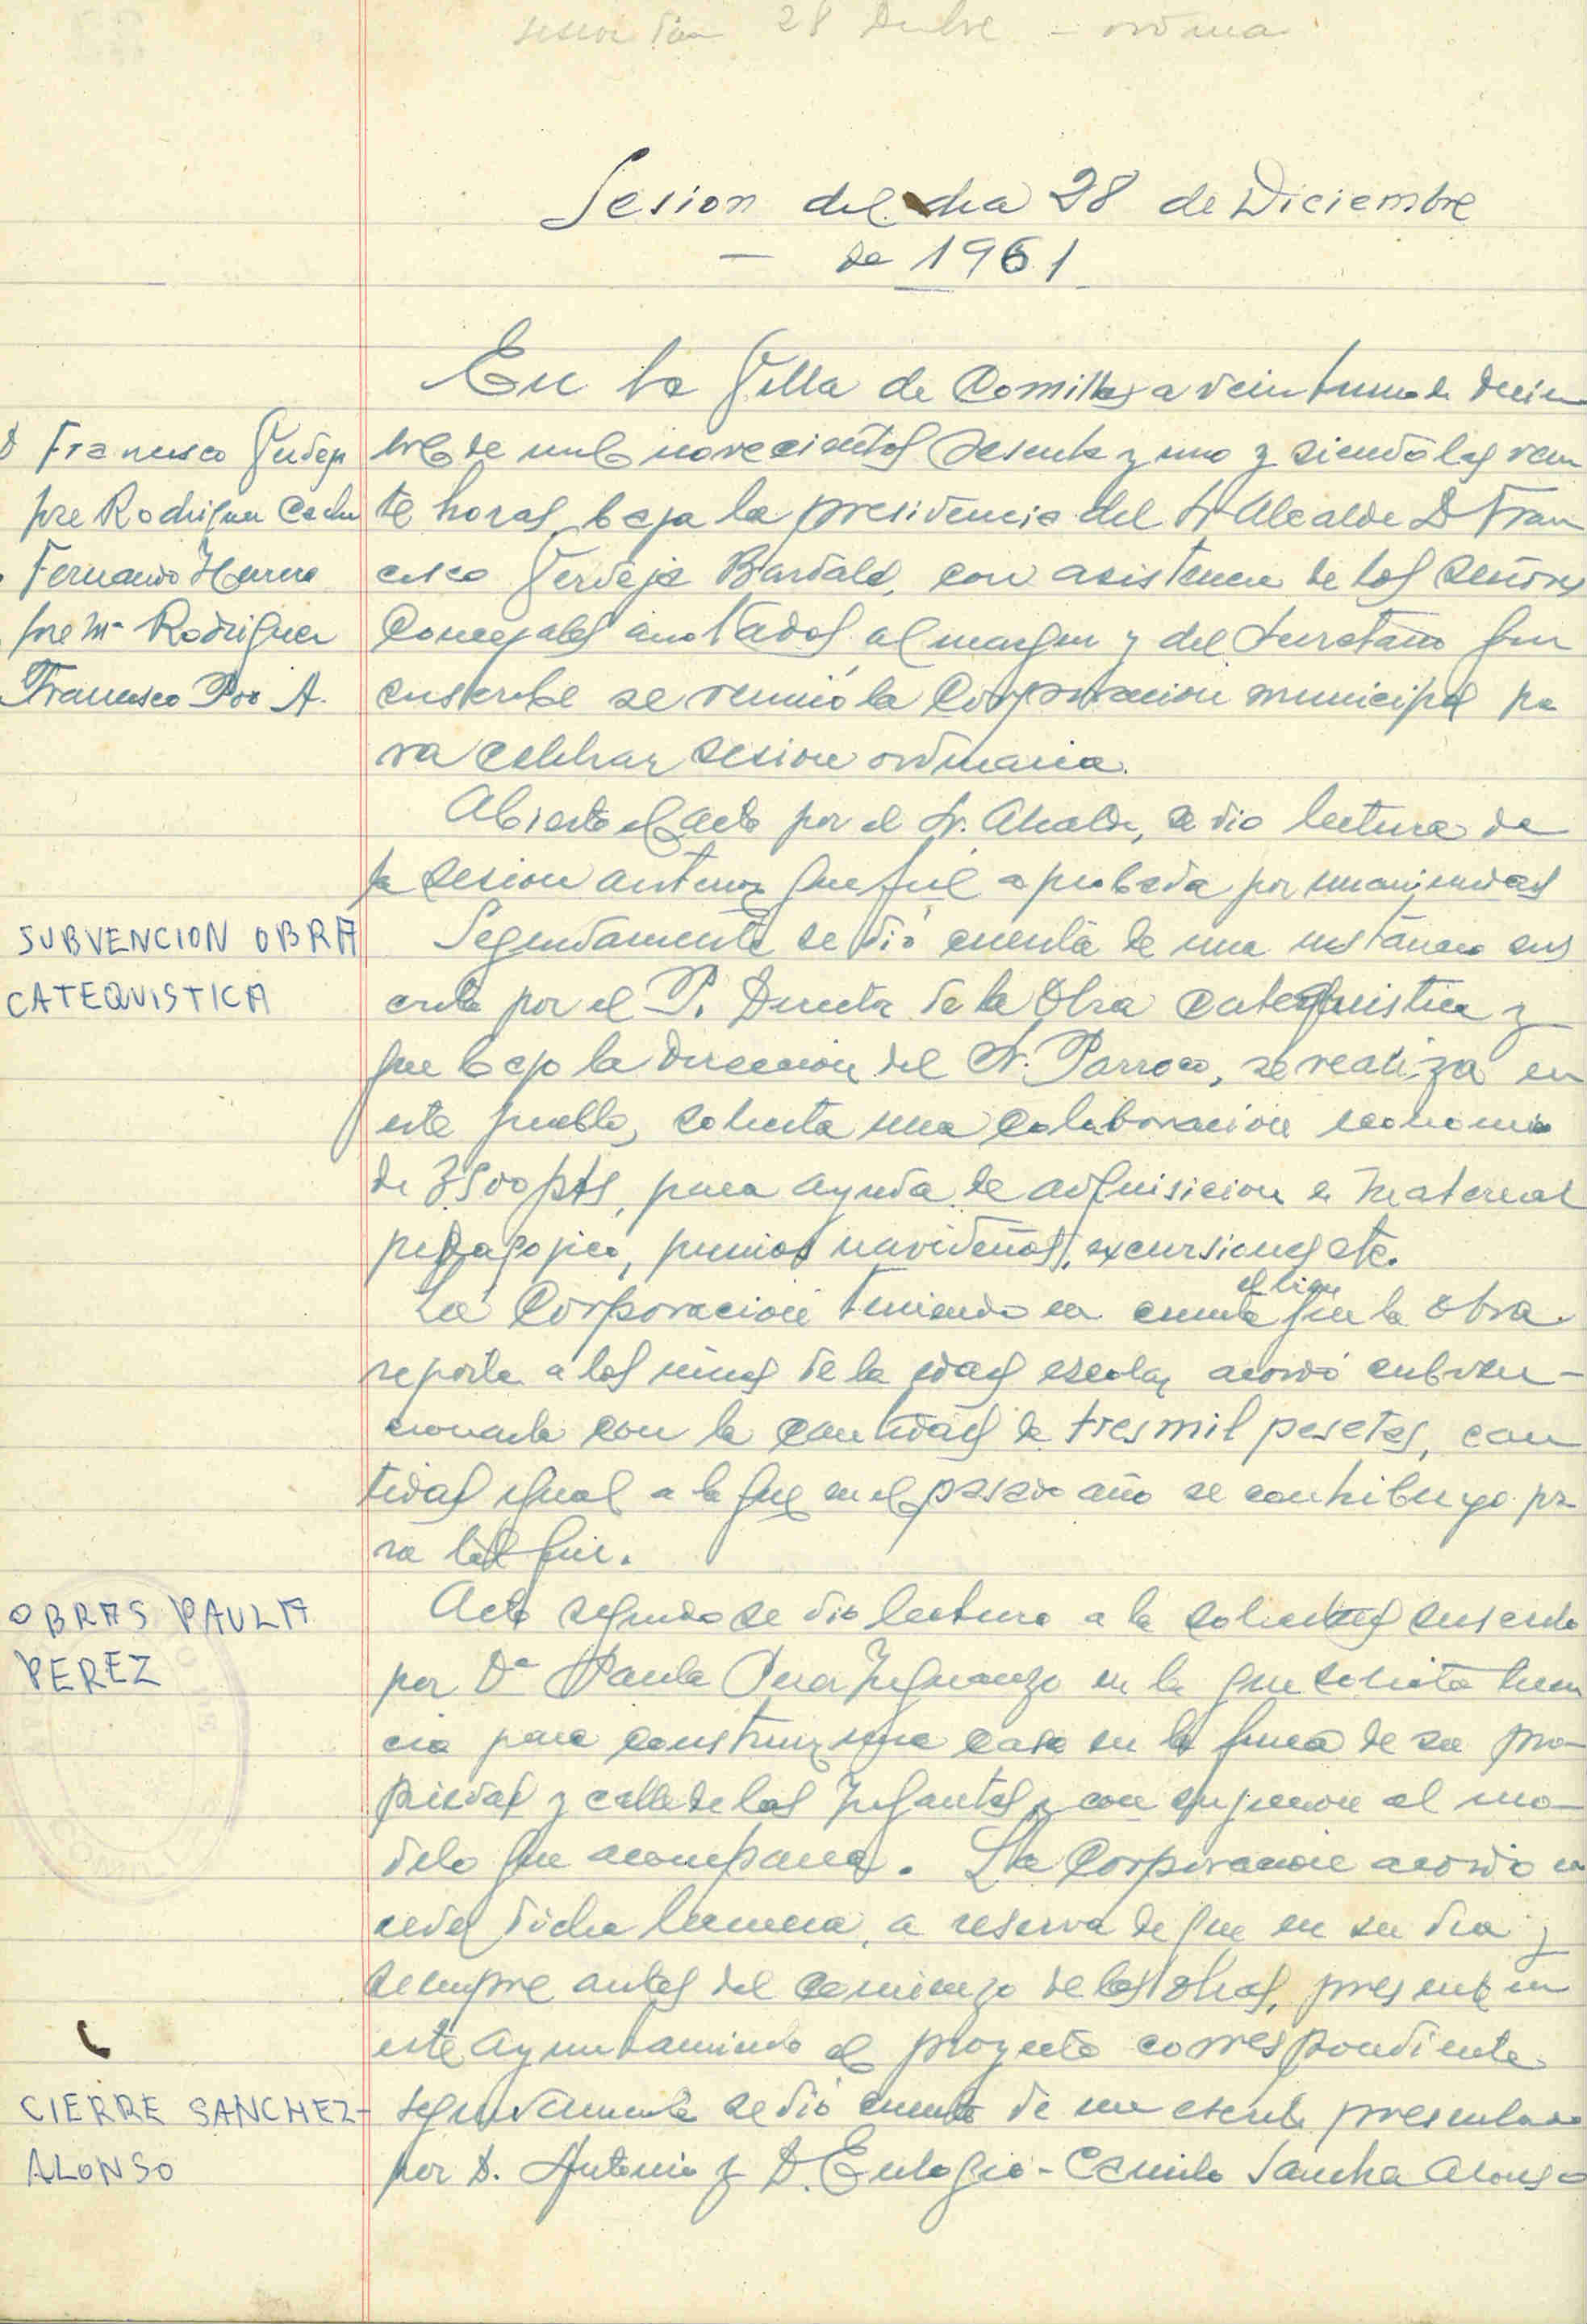 28 - ordina
Sesion del dia 28 de Diciembre
- de 1961
En la Villa de Comillas a veintiuno de Diciem
D Francisco Verdeja
bre de mil novecientos sesenta y uno y siendo las vein
Jose Rodriguez
te horas, bajo la presidencia del Sr Alcalde D Fran
Fernando Herrera
cisco Verdeja Bardales, con asistencia de los señores
Jose Mª Rodriguez
Concejales anotados al margen y del Secretario que
Francisco Poo A.
suscribe se reunió la Corporacion municipal pa
ra celebrar sesion ordinaria.
Abierto el acto por el Sr. Alcalde, se dio lectura de
la sesion anterior que fué aprobada por unanimidad
SUBVENCION OBRA
CATEQUISTICA
Seguidamente se dió cuenta de una instancia sus
crita por el P. Director de la Obra Catequistica y
que bajo la direccion del Sr. Parroco, se realiza en
este pueblo, solicita una colaboracion economica
de 3500 pts, para ayuda de adquisicion de material
pedagogico, premios navideños, excursiones etc.
La Corporacion teniendo en cuenta el bien que la obra
reporta a los niños de la edad escolar acordó subven-
cionarla con la cantidad de tres mil pesetas, can
tidad igual a la que en el pasado año se contribuyo pa
ra tal fin.
OBRAS PAULA
PEREZ
Acto seguido se dio lectura a la solicitud suscrita
por Dª Paula Perez Inguanzo en la que solicita licen
cia para construir una casa en la finca de su pro-
piedad y calle de los Infantes y con sujecion al mo-
delo que acompaña. La Corporacion acordó con
ceder dicha licencia, a reserva de que en su dia y
siempre antes del comienzo de las obras, presente en
este Ayuntamiento el proyecto correspondiente
CIERRE SANCHEZ-
ALONSO
seguidamente se dió cuenta de un escrito presentado
por D. Antonio y D. Eulogio-Camilo Sanchez Alonso